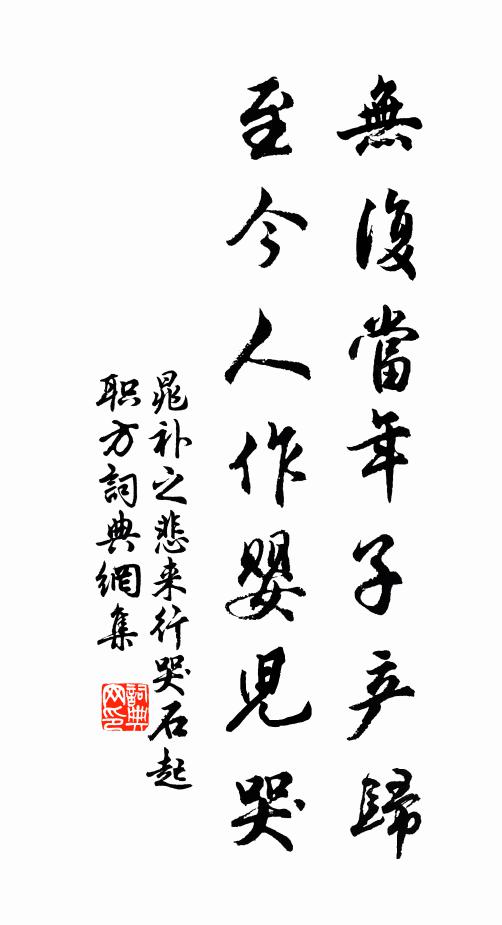 無復當年子产歸
至今人作嬰兒哭
晁补之悲来行哭石起
职方詞典網集
詞典
网印